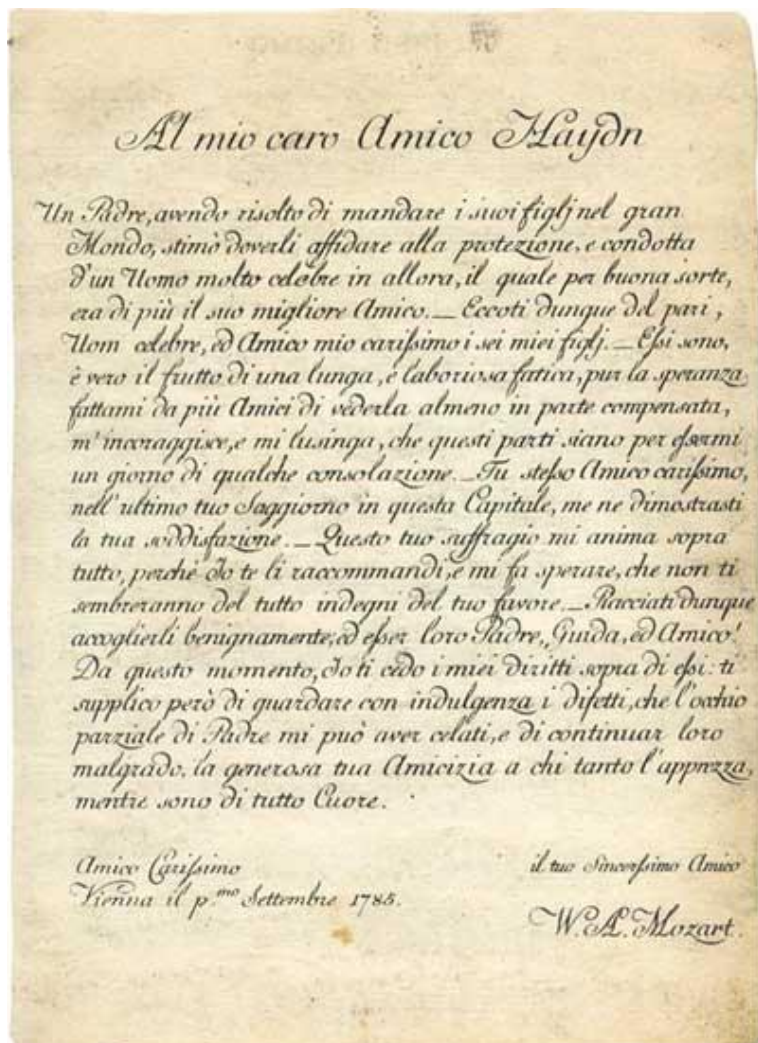 Al mio caro Amico Haydn
Un Padre, avendo risolto di mandare i suoi figlj nel gran
Mondo, stimò doverli affidare alla protezione, e condotta
d'un Uomo molto celebre in allora, il quale per buona sorte,
era di più il suo migliore Amico. — Eccoti dunque del pari,
Uom celebre, ed Amico mio carissimo i sei miei figlj. — Essi sono,
è vero il frutto di una lunga, e laboriosa fatica, pur la speranza
fattami da più Amici di vederla almeno in parte compensata,
m'incoraggisce, e mi lusinga, che questi parti siano per essermi
un giorno di qualche consolazione. — Tu stesso Amico carissimo,
nell'ultimo tuo Soggiorno in questa Capitale, me ne dimostrasti
la tua soddisfazione. — Questo tuo suffragio mi anima sopra
tutto, perchè Io te li raccommandi, e mi fa sperare, che non ti
sembreranno del tutto indegni del tuo favore. — Piacciati dunque
accoglierli benignamente, ed esser loro Padre, Guida, ed Amico!
Da questo momento, Io ti cedo i miei diritti sopra di essi: ti
supplico però di guardare con indulgenza i difetti, che l'occhio
parziale di Padre mi può aver celati, e di continuar loro
malgrado, la generosa tua Amicizia a chi tanto l'apprezza,
mentre sono di tutto Cuore.
Amico Carissimo
il tuo Sincerissimo Amico
Vienna il p.mo Settembre 1785.
W. A. Mozart.